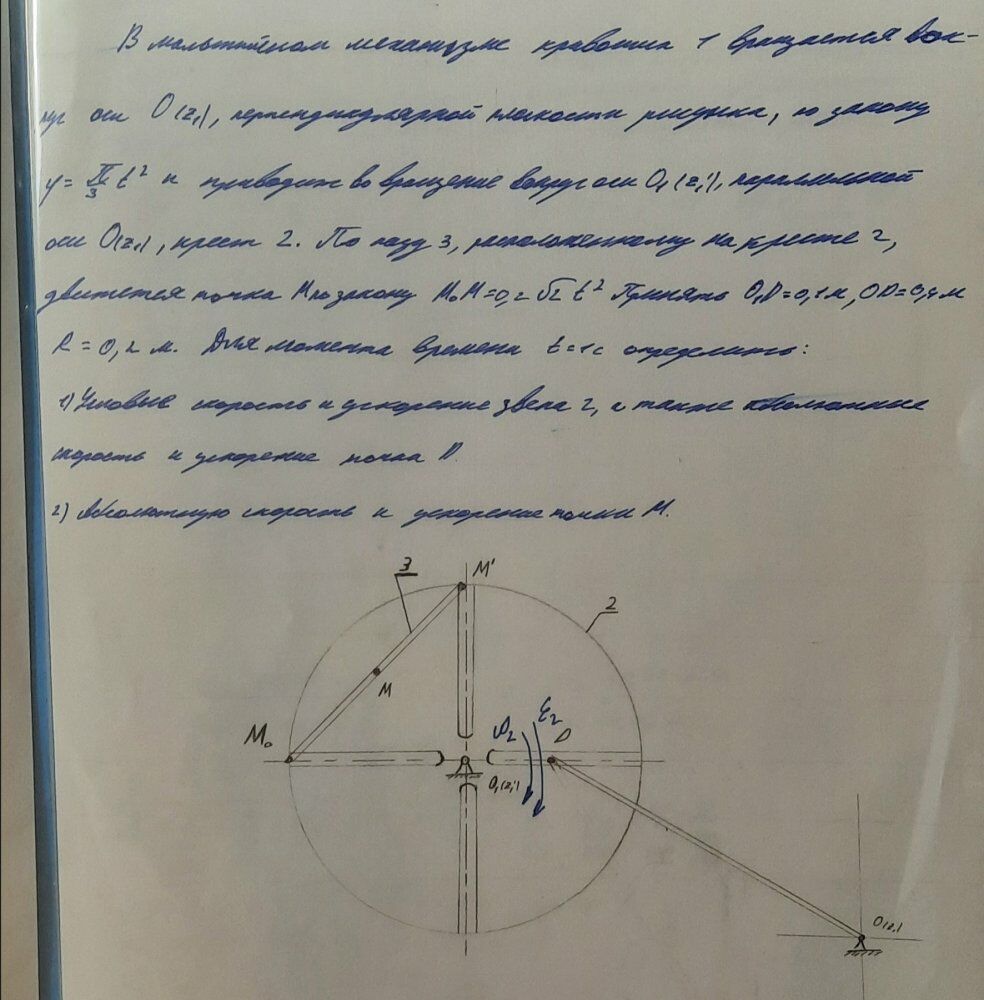 В мальтийском механизме кривошип 1 вращается вок-
руг оси O(z₁), перпендикулярной плоскости рисунка, по закону
φ = π/3 t² и приводит во вращение вокруг оси O₁(z₁'), параллельной
оси O(z₁), крест 2. По пазу 3, расположенному на кресте 2,
движется точка M по закону M₀M = 0,2 √2 t² Принять O₁D = 0,1 м, OD = 0,4 м
R = 0,2 м. Для момента времени t = 1 с определить:
1) Угловые скорость и ускорение звена 2, а также абсолютные
скорость и ускорение точки D.
2) Абсолютную скорость и ускорение точки M.
3
M'
2
M
M₀
ω₂
ε₂
D
O₁(z₁')
O(z₁)